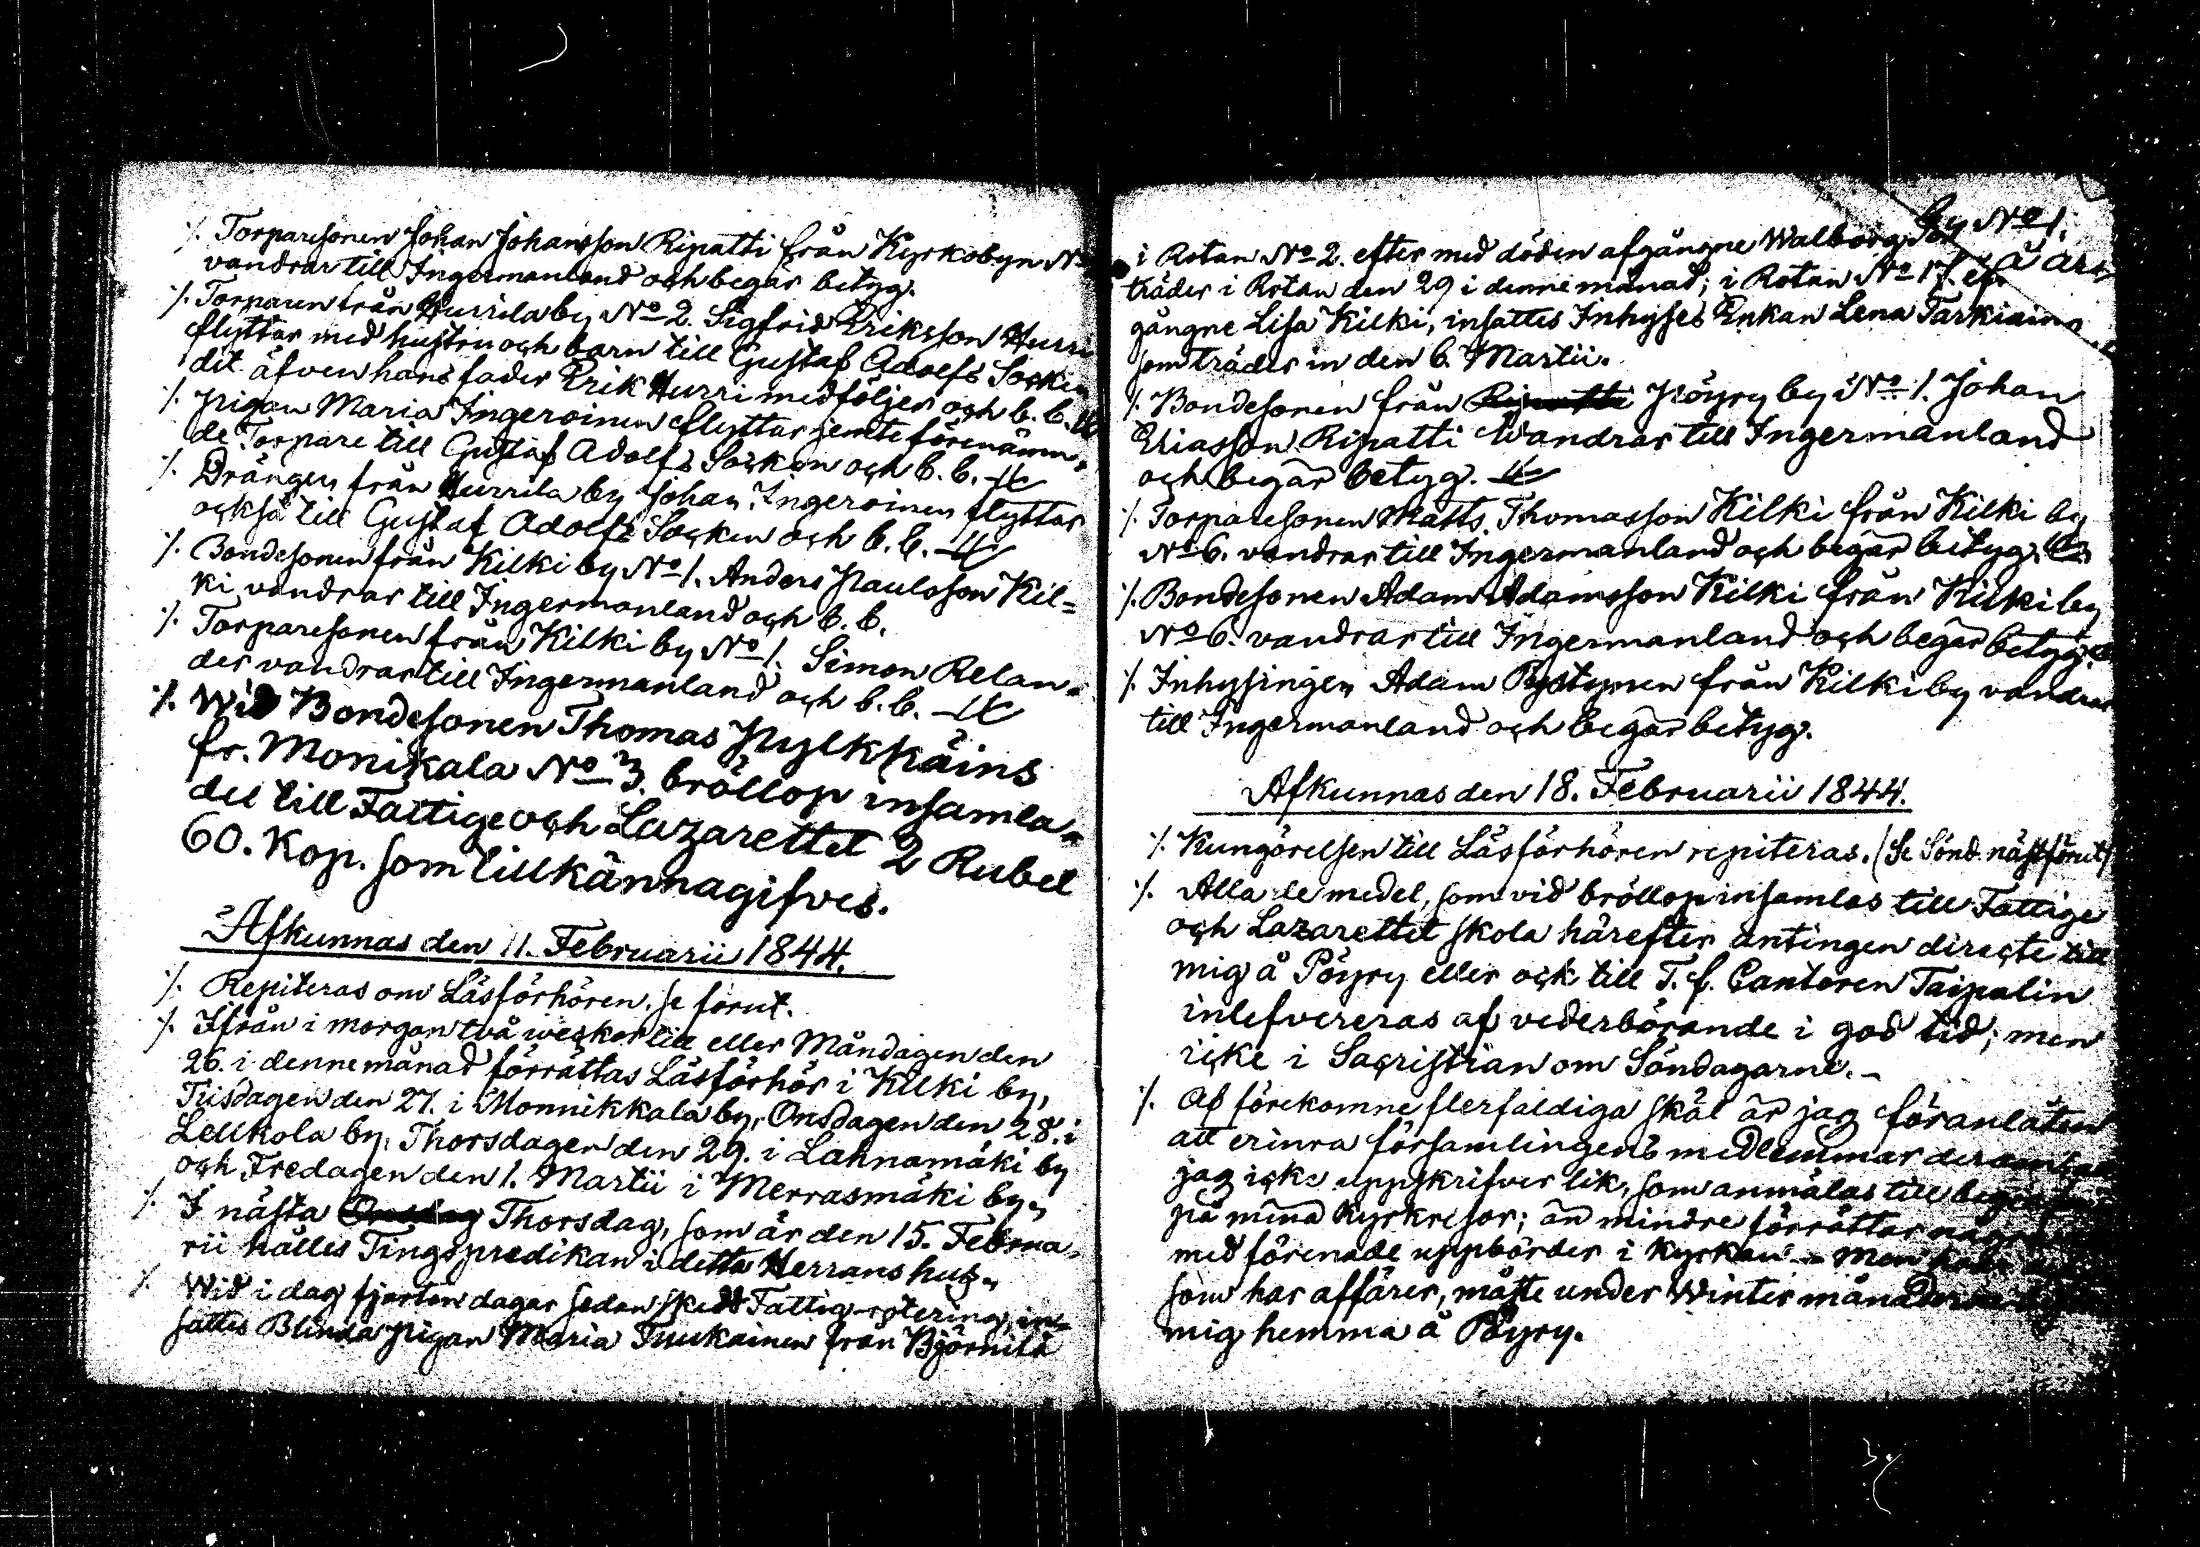 ⁒ Torparesonen Johan Johansson Ripatti från Kyrkobyn No
vandrar till Ingermanland och begär betyg.
⁒ Torparen från Hurrila by No 2. Sigfrid Eriksson Hurri
flyttar med hustru och barn till Gustaf Adolfs Socken
dit äfven hans fader Erik Hurri medföljer och b. b.
⁒ Pigan Maria Ingeroinen flyttar jemte förenämn-
de Torpare till Gustaf Adolfs Socken och b. b.
⁒ Drängen från Hurrila by Johan Ingeroinen flyttar
också till Gustaf Adolfs Socken och b. b.
⁒ Bondesonen från Kilki by No 1. Anders Paulsson Kil=
ki vandrar till Ingermanland och b. b.
⁒ Torparesonen från Kilki by No 1. Simon Relan-
der vandrar till Ingermanland och b. b.
⁒ Wid Bondesonen Thomas Pylkkäins
fr. Monikala No 3. bröllop insamla-
des till Fattige och Lazarettet 2 Rubel
60. Kop. som tillkännagifves.
Afkunnas den 11. Februarii 1844.
⁒ Repiteras om Läsförhören. se förut.
⁒ Ifrån i morgon två weckor till eller Måndagen den
26. i denne månad förrättas Läsförhör i Kilki by,
Tisdagen den 27. i Monnikkala by, Onsdagen den 28. i
Lellkola by, Thorsdagen den 29. i Lahnamäki by
och Fredagen den 1. Martii i Merrasmäki by.
⁒ I nästa Onsdag Thorsdag, som är den 15. Februa-
rii hålles Tingspredikan i detta Herrans hus.
⁒ Wid i dag fjorton dagar sedan skedd Fattig-rotering, in-
sattes Blinda Pigan Maria Tuukainen från Björnilä
by No 1.
i Rotan No 2. efter med döden afgångne Walborg
träder i Rotan den 29 i denne månad; i Rotan No 17. ef
gångne Lisa Kilki, insattes Inhyses Enkan Lena Tarkiain
som träder in den 6. Martii.
⁒ Bondesonen från Ripatti Pöyry by No 1. Johan
Eliasson Ripatti Wandrar till Ingermanland
och begär betyg.
⁒ Torparesonen Matts Thomasson Kilki från Kilki by
No 6. vandrar till Ingermanland och begär betyg.
⁒ Bondesonen Adam Adamsson Kilki från Kilki by
No 6. vandrar till Ingermanland och begär betyg.
⁒ Inhysingen Adam Pystynen från Kilki by vandrar
till Ingermanland och begär betyg.
Afkunnas den 18. Februarii 1844.
⁒ Kungörelsen till Läsförhören repiteras. (Se Sönd. näst förut)
⁒ Alla de medel, som vid bröllop insamlas till Fattige
och Lazarettet skola härefter antingen directe till
mig å Pöyry eller ock till T. f. Cantoren Taipalin
inlefvereras af vederbörande i god tid; men
icke i Sacristian om Söndagarne.
⁒ Af förekomne flerfaldiga skäl är jag föranlåten
att erinra församlingens medlemmar derom
jag icke uppskrifver lik, som anmälas till
på mina Kyrkresor; än mindre förrättar
med förenade uppbörder i Kyrkan - Men
som har affärer, måste under Winter månaderne
mig hemma å Pöyry.